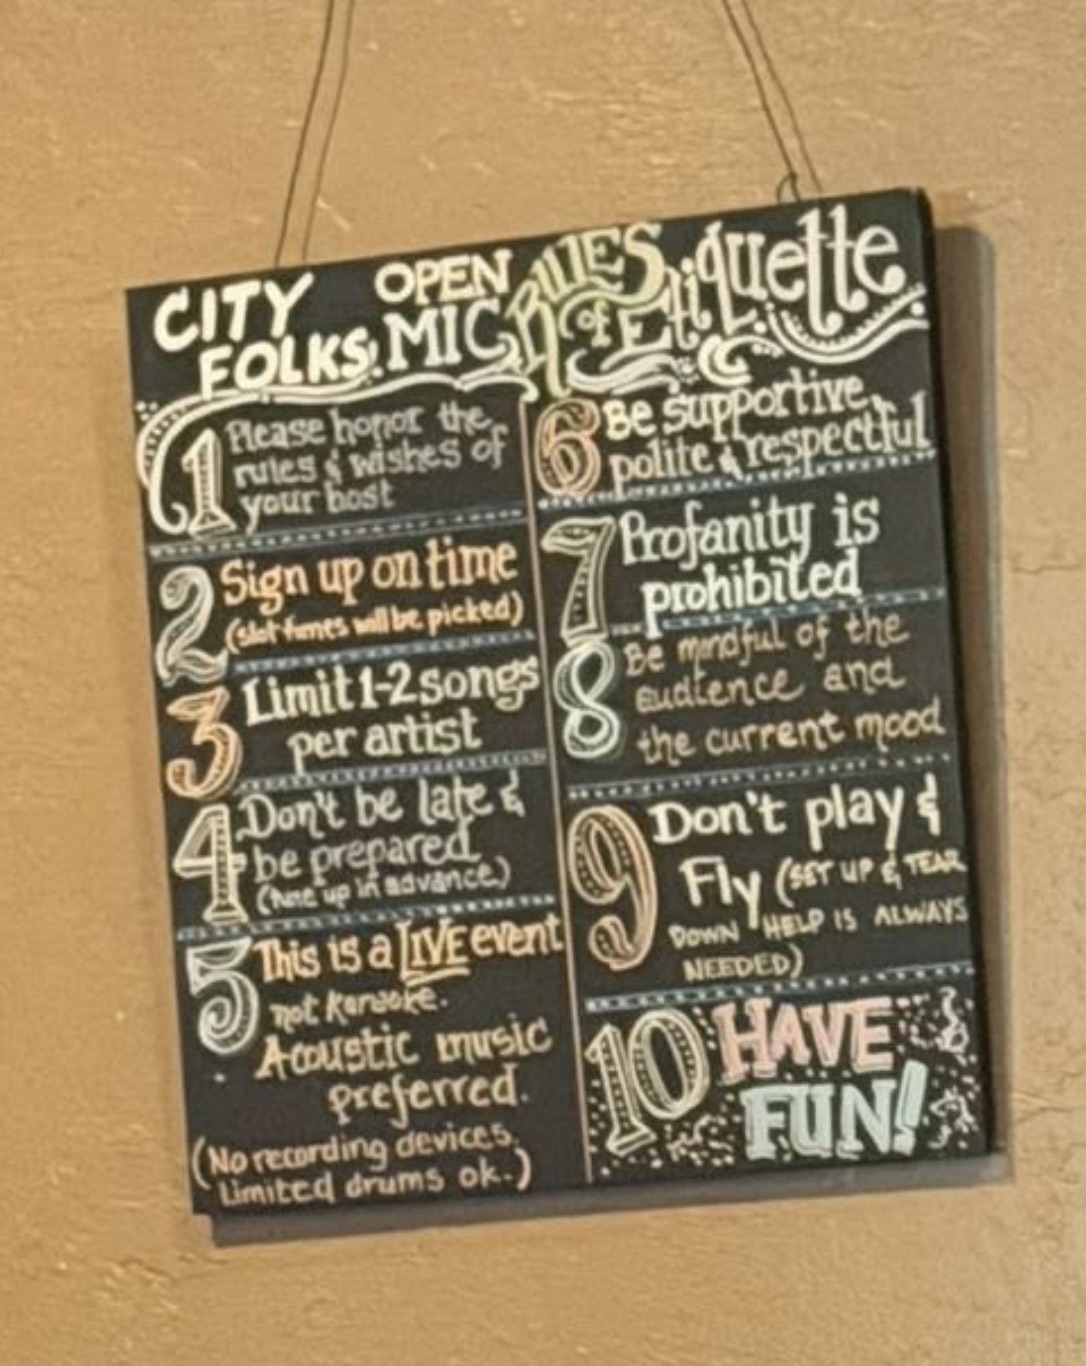 CITY
FOLKS.
OPEN
MIC
RULES
of Etiquette
1 Please honor the
rules & wishes of
your host
2 Sign up on time
(slot times will be picked)
3 Limit 1-2 songs
per artist
4 Don't be late &
be prepared
(tune up in advance.)
5 This is a LIVE event
not Karaoke.
Acoustic music
preferred.
(No recording devices.
Limited drums ok.)
6 Be supportive,
polite & respectful
7 Profanity is
prohibited
8 Be mindful of the
audience and
the current mood
9 Don't play &
Fly (SET UP & TEAR
DOWN HELP IS ALWAYS
NEEDED)
10 HAVE
FUN!